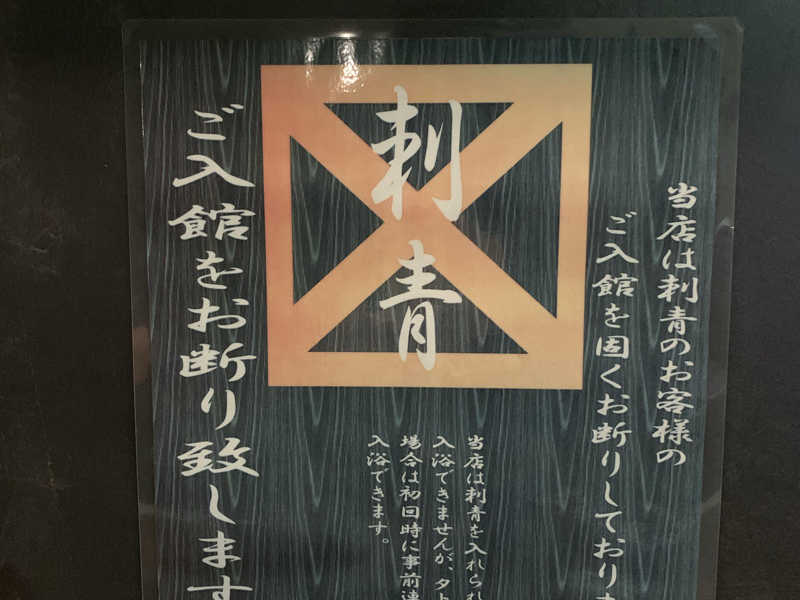 当店は刺青のお客様の
ご入館を固くお断りしており
刺青
当店は刺青を入れられ
入浴できませんが、タト
場合は初回時に事前連
入浴できます。
ご入館をお断り致します